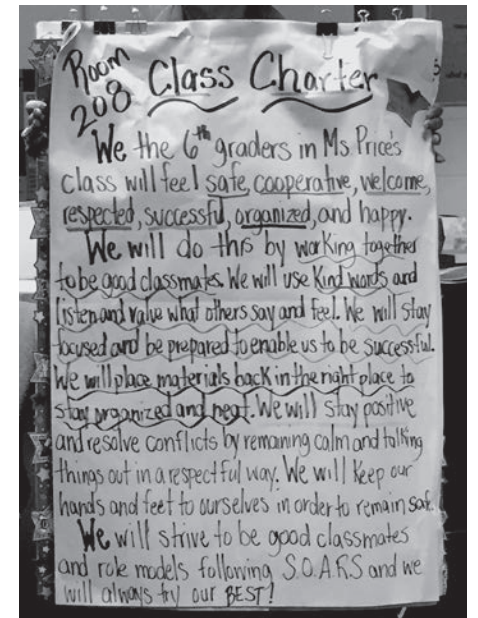 Room 208
Class Charter
We the 6th graders in Ms. Price's
class will feel safe, cooperative, welcome,
respected, successful, organized, and happy.
We will do this by working together
to be good classmates. We will use kind words and
listen and value what others say and feel. We will stay
focused and be prepared to enable us to be successful.
We will place materials back in the right place to
stay organized and neat. We will stay positive
and resolve conflicts by remaining calm and talking
things out in a respectful way. We will keep our
hands and feet to ourselves in order to remain safe.
We will strive to be good classmates
and role models following S.O.A.R.S and we
will always try our BEST!